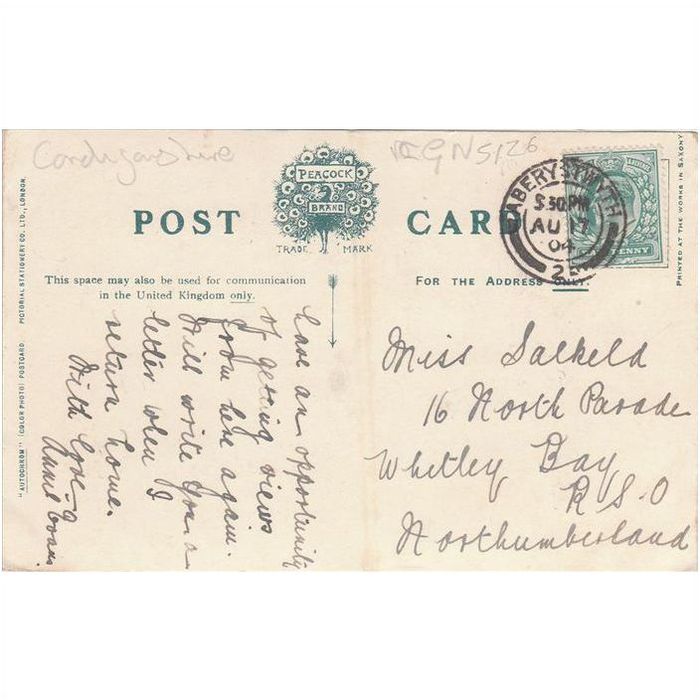 Cardiganshire
IGN5126
PEACOCK
BRAND
POST CARD
TRADE MARK
This space may also be used for communication
in the United Kingdom only.
FOR THE ADDRESS ONLY.
ABERYSTWYTH
5.30PM
AU 17
04
PENNY
PRINTED AT THE WORKS IN SAXONY
"AUTOCHROM" (COLOR PHOTO) POSTCARD PICTORIAL STATIONERY CO. LTD., LONDON.
have an opportunity
of getting views
from here again.
Will write you a
letter when I
return home.
With love
Annie Evans.
Miss Salkeld
16 North Parade
Whitley Bay
R.S.O
Northumberland